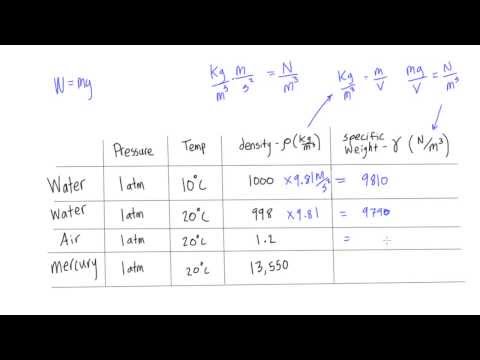 W = mg
Kg/m³ · m/s² = N/m³
Kg/m³ = m/V mg/V = N/m³
Pressure Temp density - ρ (Kg/m³) specific weight - γ (N/m³)
Water 1 atm 10°C 1000 × 9.81 m/s² = 9810
Water 1 atm 20°C 998 × 9.81 = 9790
Air 1 atm 20°C 1.2 =
mercury 1 atm 20°C 13,550